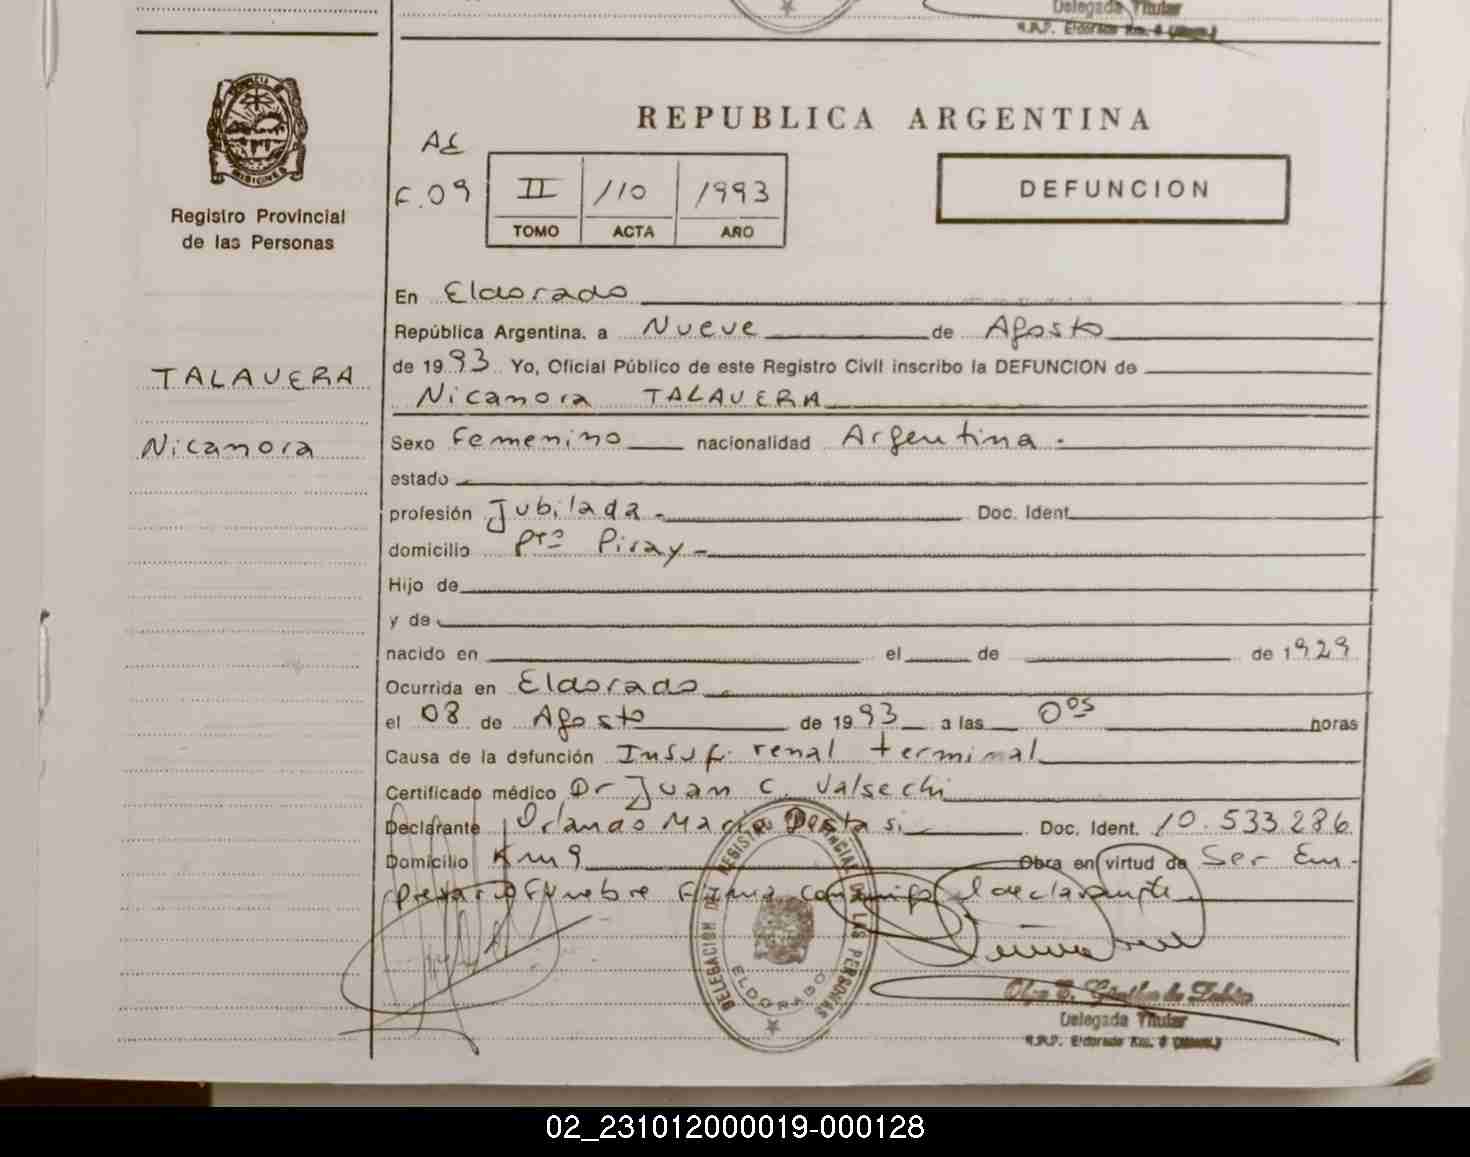 Delegada Titular
R.P.P. Eldorado Km. 9 (Mnes.)
PROVINCIA DE
MISIONES
Registro Provincial
de las Personas
REPUBLICA ARGENTINA
AE
F.09
II 110 1993
TOMO ACTA AÑO
DEFUNCION
TALAVERA
Nicanora
En Eldorado
República Argentina, a Nueve de Agosto
de 1993. Yo, Oficial Público de este Registro Civil inscribo la DEFUNCION de
Nicanora TALAVERA
Sexo Femenino nacionalidad Argentina.-
estado
profesión Jubilada.- Doc. Ident.
domicilio Pto Piray-
Hijo de
y de
nacido en el de de 1929
Ocurrida en Eldorado.
el 08 de Agosto de 1993 a las 0os horas
Causa de la defunción Insuf. renal terminal
Certificado médico Dr Juan C. Valsechi
Declarante Orlando Mario Obra en virtud de Ser Em-
Doc. Ident. 10.533.286
Domicilio Km 9
presario Fúnebre Firma conmigo el declarante.
DELEGACION DE REGISTRO PROVINCIAL DE LAS PERSONAS
ELDORADO
Delegada Titular
R.P.P. Eldorado Km. 9 (Mnes.)
02_231012000019-000128